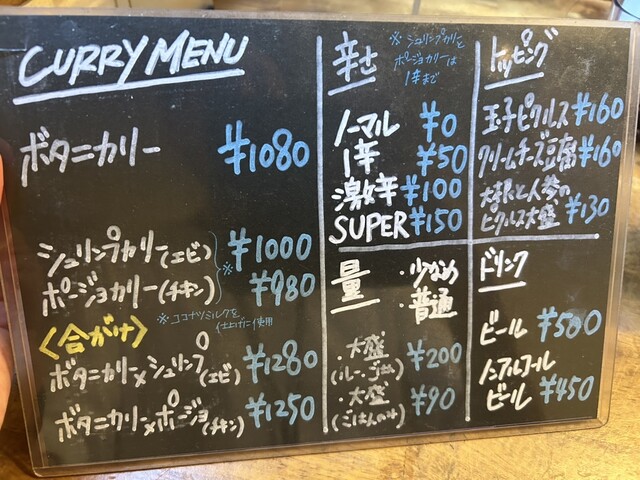 CURRY MENU
ボタニカリー ¥1080
シュリンプカリー(エビ) ¥1000
ポージョカリー(チキン) ¥980
※
※ココナツミルクを
仕上げに使用
<合がけ>
ボタニカリー×シュリンプ(エビ) ¥1280
ボタニカリー×ポージョ(チキン) ¥1250
辛さ
※シュリンプカリーと
ポージョカリーは
1辛まで
ノーマル ¥0
1辛 ¥50
激辛 ¥100
SUPER ¥150
量
・少なめ
・普通
・大盛
(ルー、ごはん) ¥200
・大盛
(ごはんのみ) ¥90
トッピング
玉子ピクルス ¥160
クリームチーズ豆腐 ¥160
大根と人参の
ピクルス大盛 ¥130
ドリンク
ビール ¥500
ノンアルコール
ビール ¥450